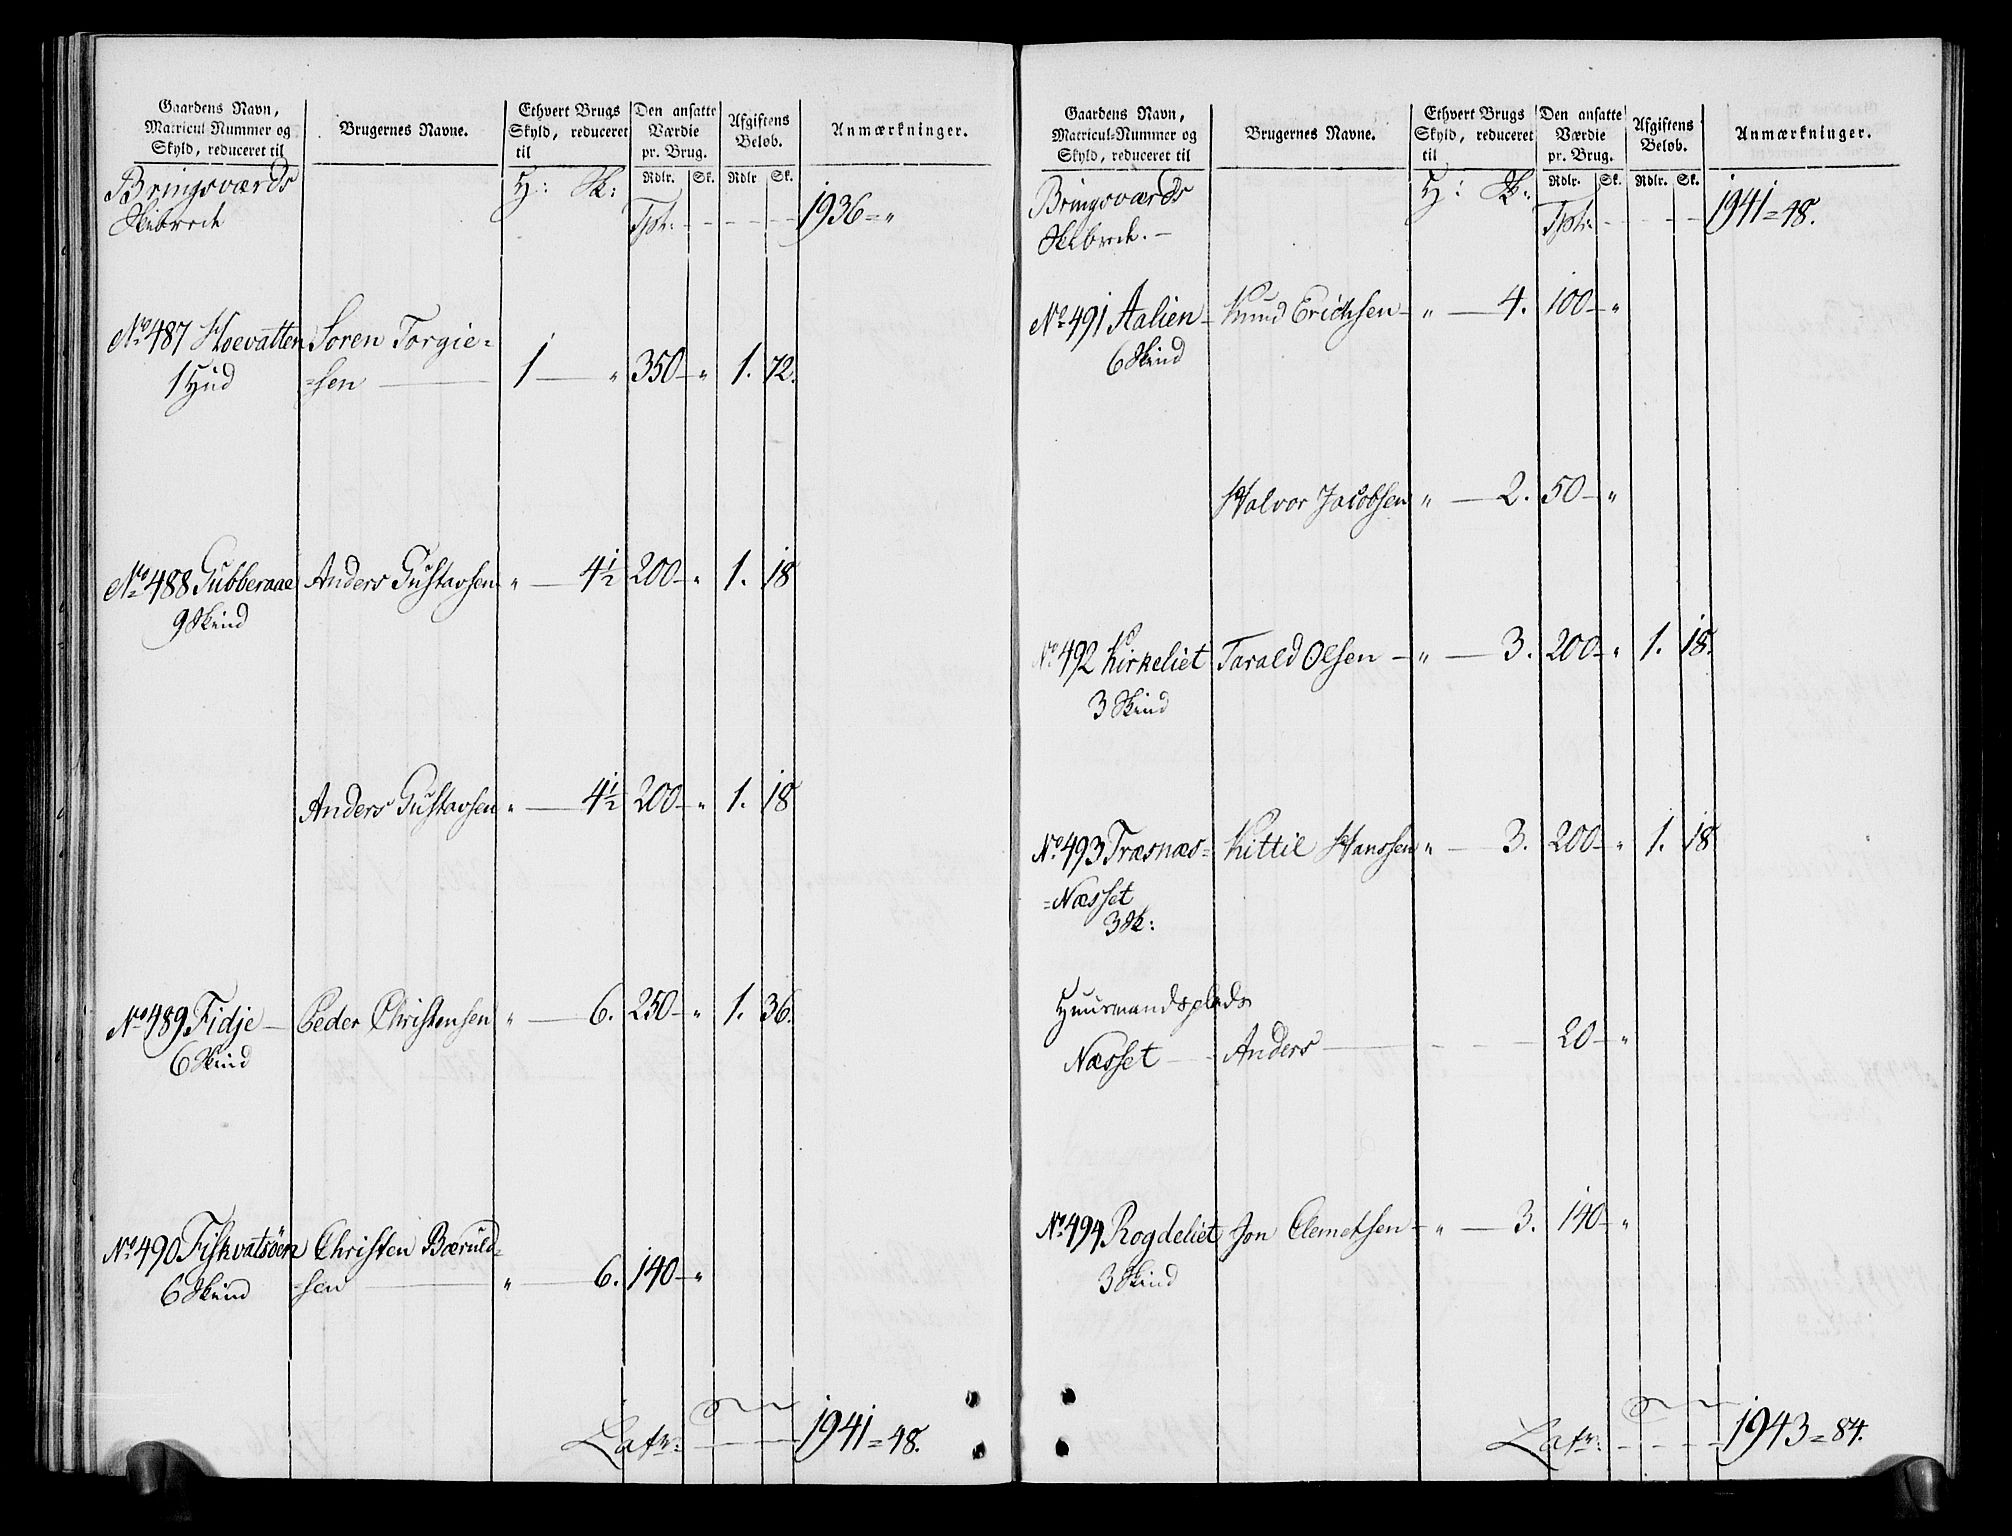 Gaardens Navn,
Matricul-Nummer og
Skyld, reduceret til
Brugernes Navne.
Ethvert Brugs
Skyld, reduceret
til
Den ansatte
Værdie
pr. Brug.
Afgiftens
Beløb.
Anmærkninger.
Rdlr. Sk. Rdlr Sk.
Bringsværds H: Sk:
Skibrede Tpt: 1936 = "
No 487 Hoevatten Soren Torgie=
1 Hud =sen 1 " 350 " 1. 72.
No 488 Gubberaae Anders Gustavsen " 4½ 200 " 1. 18
9 Skind
Anders Gustavsen " 4½ 200 " 1. 18
No 489 Fidje Peder Christensen " 6. 250 " 1. 36.
6 Skind
No 490 Fiskvatsøen Christen Bæruld=
6 Skind =sen " 6. 140 "
Latr: 1941 = 48.
Gaardens Navn,
Matricul-Nummer og
Skyld, reduceret til
Brugernes Navne.
Ethvert Brugs
Skyld, reduceret
til
Den ansatte
Værdie
pr. Brug.
Afgiftens
Beløb.
Anmærkninger.
Rdlr. Sk. Rdlr. Sk.
Bringsværds H: Sk:
Skibrede. Tpt: 1941 = 48.
No 491 Aalien Knud Erichsen " 4. 100 "
6 Skind
Halvor Jacobsen " 2. 50 "
No 492 Kirkeliet Tarald Olsen " 3. 200 " 1. 18.
3 Skind
No 493 Træsnæs= Kittil Hanssen " 3. 200 " 1. 18
=Næsset
3 Sk:
Huusmandsplads
Næsset Anders 20 "
No 494 Rogdeliet Jon Clemetsen " 3. 140 "
3 Skind
Latr: 1943 = 84.